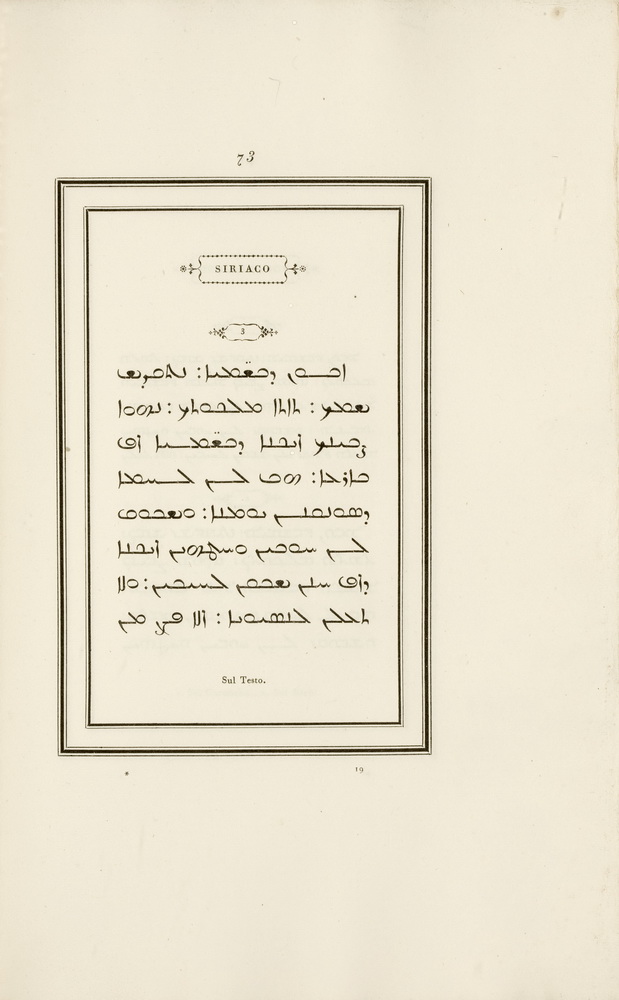 73
SIRIACO
3
ܐܒܘܢ ܕܒܫ̈ܡܝܐ: ܢܬܩܕܫ
ܫܡܟ: ܬܐܬܐ ܡܠܟܘܬܟ: ܢܗܘܐ
ܨܒܝܢܟ ܐܝܟܢܐ ܕܒܫ̈ܡܝܐ ܐܦ
ܒܐܪܥܐ: ܗܒ ܠܢ ܠܚܡܐ
ܕܣܘܢܩܢܢ ܝܘܡܢܐ: ܘܫܒܘܩ
ܠܢ ܚܘܒܝܢ ܘܚܛܗܝܢ ܐܝܟܢܐ
ܕܐܦ ܚܢܢ ܫܒܩܢ ܠܚܝܒܝܢ: ܘܠܐ
ܬܥܠܢ ܠܢܣܝܘܢܐ: ܐܠܐ ܦܨܢ ܡܢ
Sul Testo.
* 19